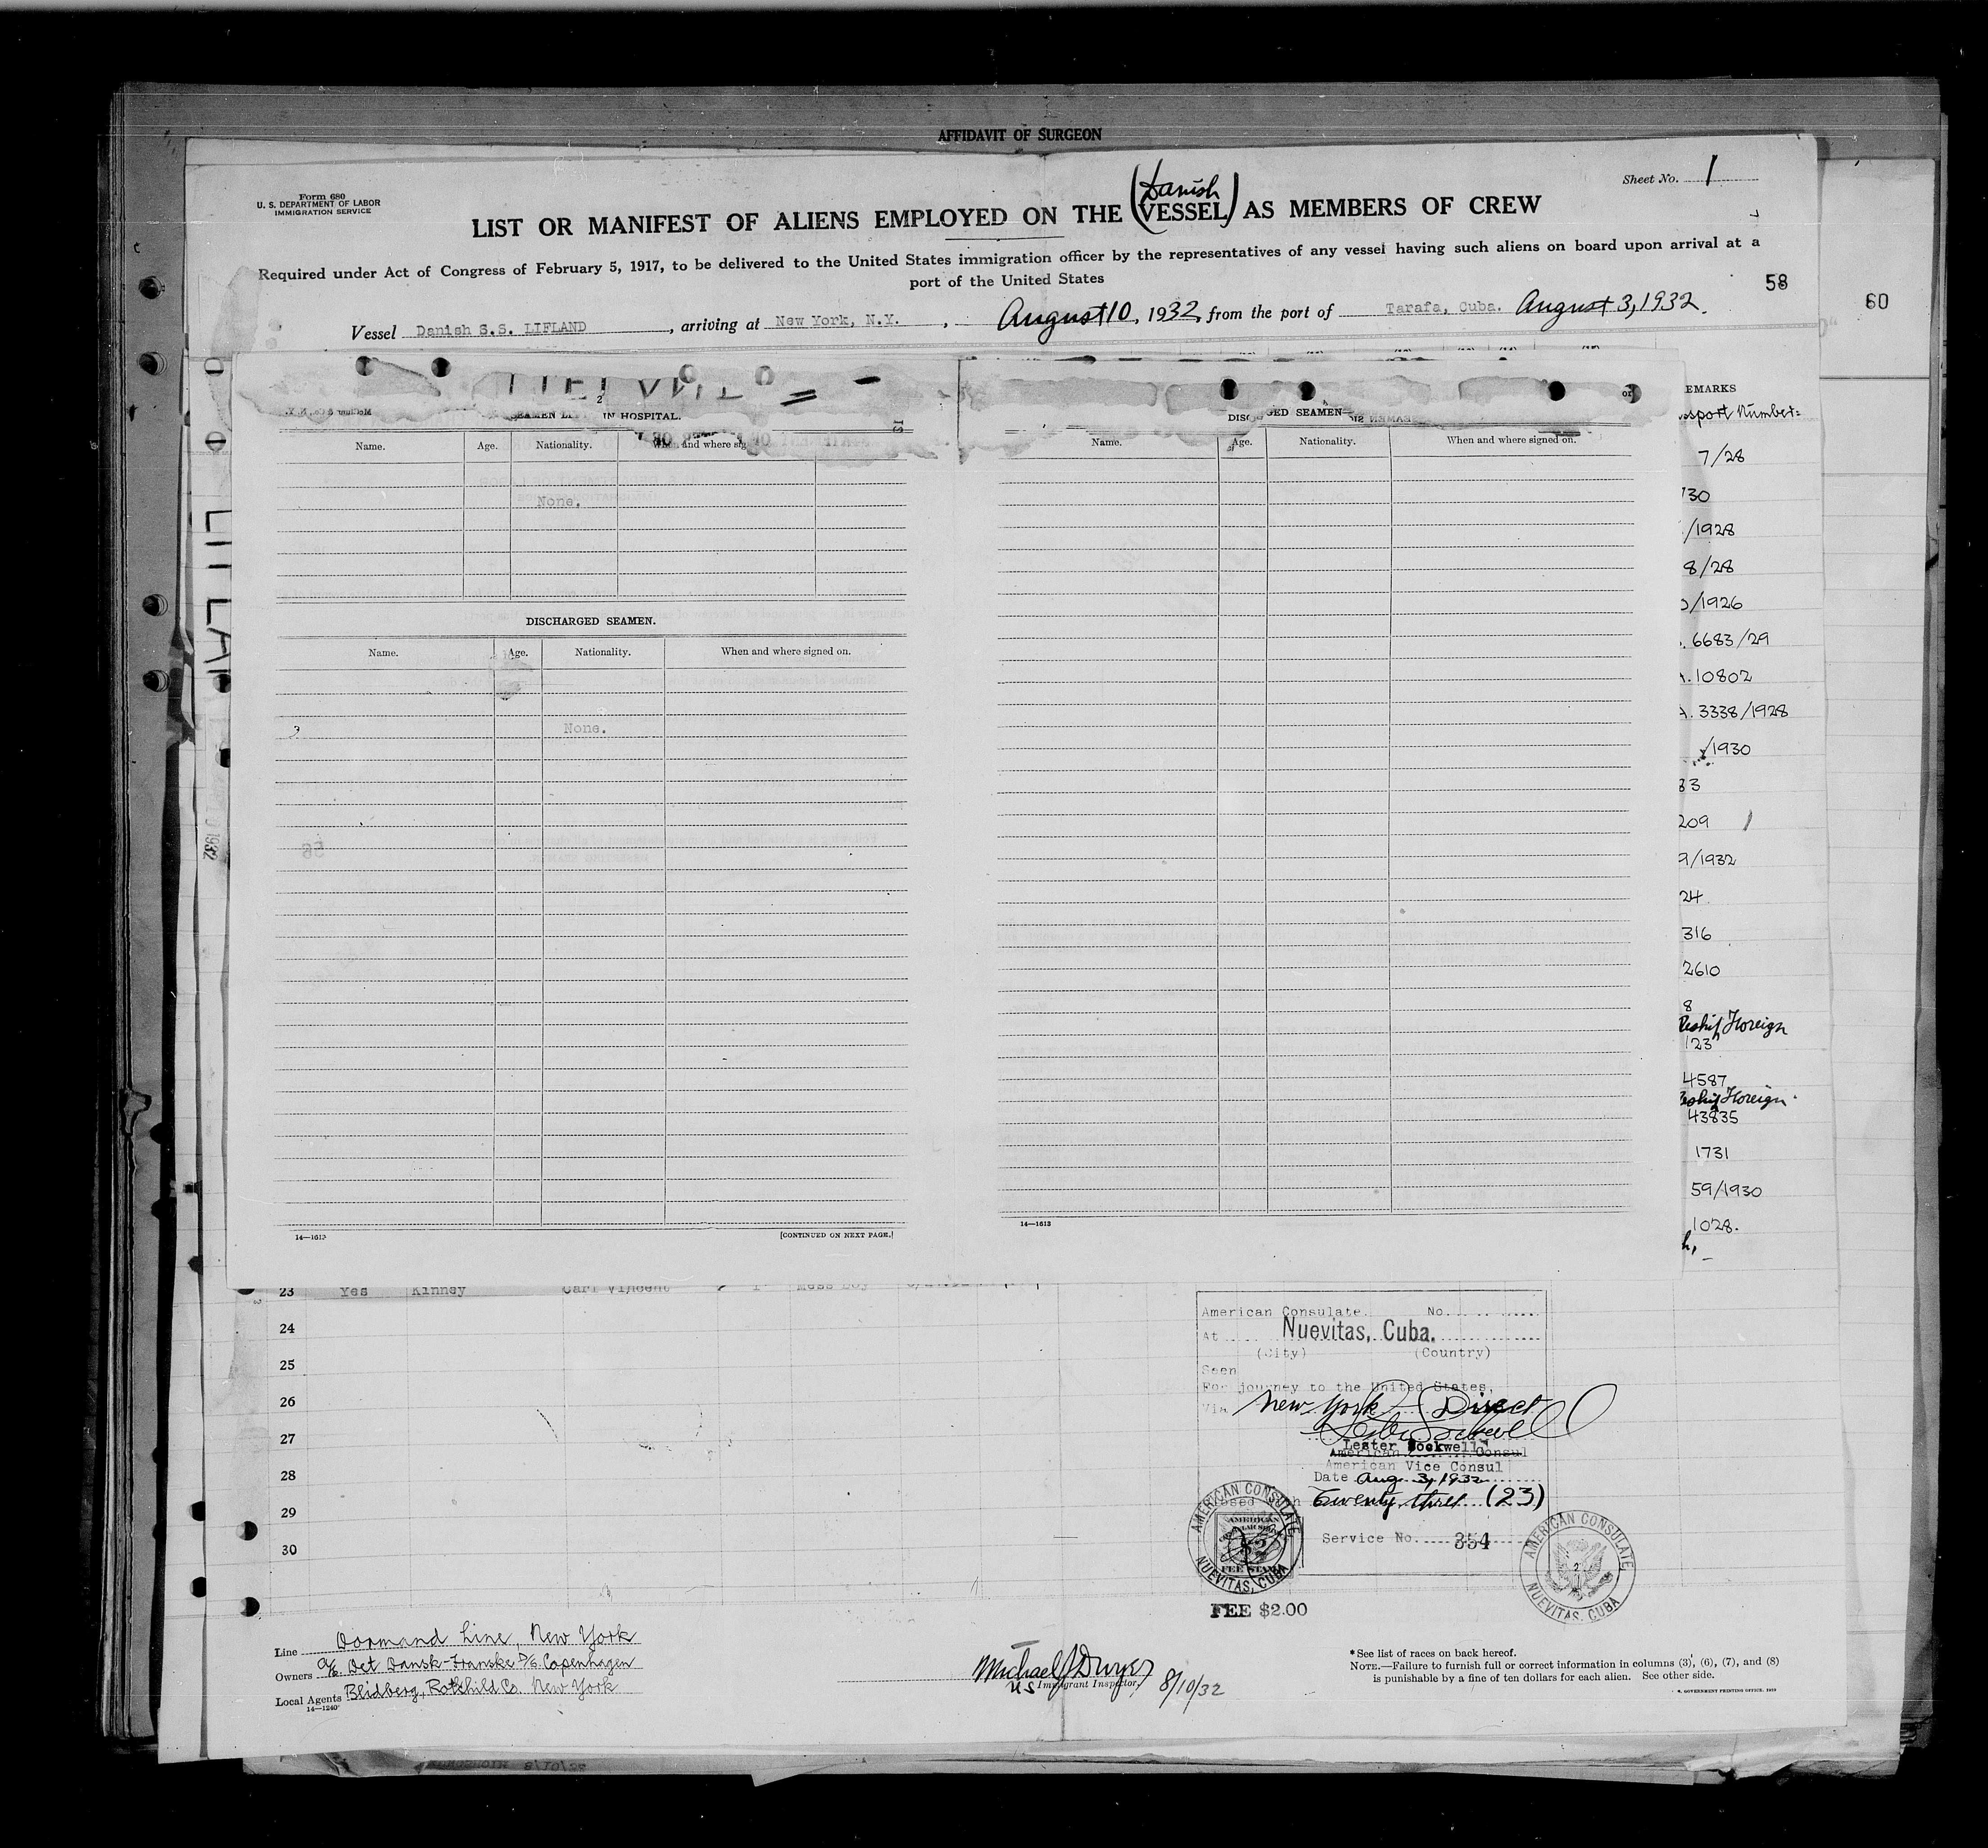 AFFIDAVIT OF SURGEON
Form 680
U. S. DEPARTMENT OF LABOR
IMMIGRATION SERVICE
Sheet No. 1
Danish
LIST OR MANIFEST OF ALIENS EMPLOYED ON THE (VESSEL) AS MEMBERS OF CREW
Required under Act of Congress of February 5, 1917, to be delivered to the United States immigration officer by the representatives of any vessel having such aliens on board upon arrival at a
port of the United States
58
60
Vessel Danish S.S. LIFLAND, arriving at New York, N.Y., August 10, 1932, from the port of Tarafa, Cuba. August 3, 1932.
EMARKS
Number
IN HOSPITAL.
SEAMEN
Name. Age. Nationality. When and where
None.
DISCHARGED SEAMEN.
Name. Age. Nationality. When and where signed on.
None.
14—1613
[CONTINUED ON NEXT PAGE.]
Name. Age. Nationality. When and where signed on.
14—1613
7/28
/30
/1928
8/28
/1926
6683/29
10802
A. 3338/1928
/1930
33
209
9/1932
24
316
2610
8
Foreign
123
4587
Foreign
43835
1731
59/1930
1028.
23 Yes Kinney Carl Vincent Mess Boy
24
25
26
27
28
29
30
American Consulate. No.
At Nuevitas, Cuba.
(City) (Country)
Seen
For journey to the United States,
Via New York Direct
Lester Sockwell
American Consul
American Vice Consul
Date Aug. 3, 1932
Twenty three (23)
Service No. 354
AMERICAN CONSULATE
NUEVITAS, CUBA
AMERICAN
$2
FEE STAMP
AMERICAN CONSULATE
NUEVITAS, CUBA
FEE $2.00
Line Dormand Line, New York
Owners A/S. Det Dansk-Franske D/S. Copenhagen
Local Agents Blidberg, Rothchild Co. New York
14—1240
Michael J Dwyer
US Immigrant Inspector 8/10/32
*See list of races on back hereof.
NOTE.—Failure to furnish full or correct information in columns (3), (6), (7), and (8)
is punishable by a fine of ten dollars for each alien. See other side.
GOVERNMENT PRINTING OFFICE